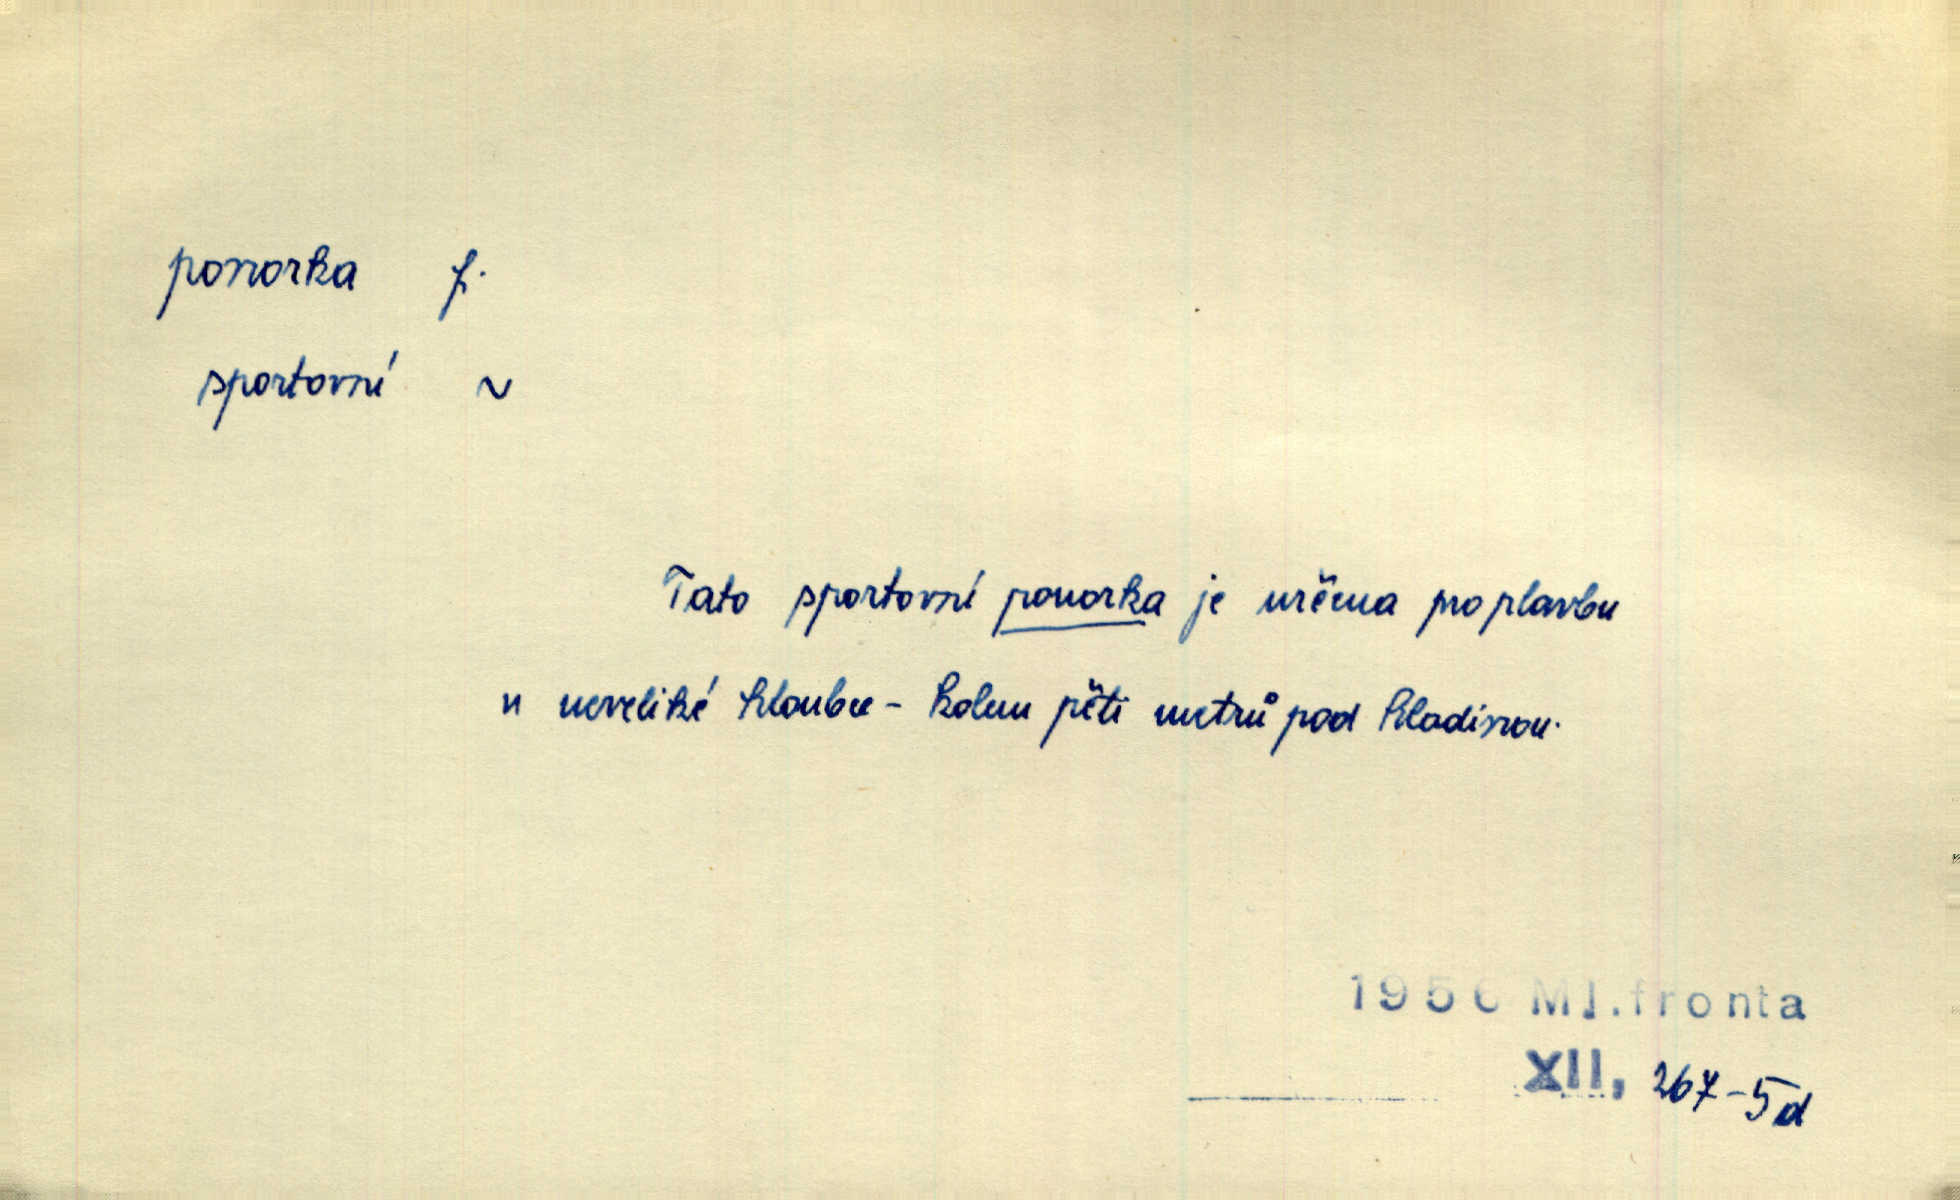 ponorka f.
sportovní ~
Tato sportovní ponorka je určena pro plavbu
v neveliké hloubce - kolem pěti metrů pod hladinou.
1956 Ml.fronta
XII, 267-5d